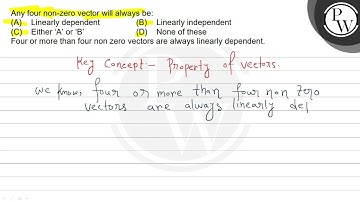 Any four non-zero vector will always be:
(A) Linearly dependent (B) Linearly independent
(C) Either 'A' or 'B' (D) None of these
Four or more than four non zero vectors are always linearly dependent.
Key Concept:- Property of vectors.
we know, four or more than four non zero
vectors are always linearly del
PW